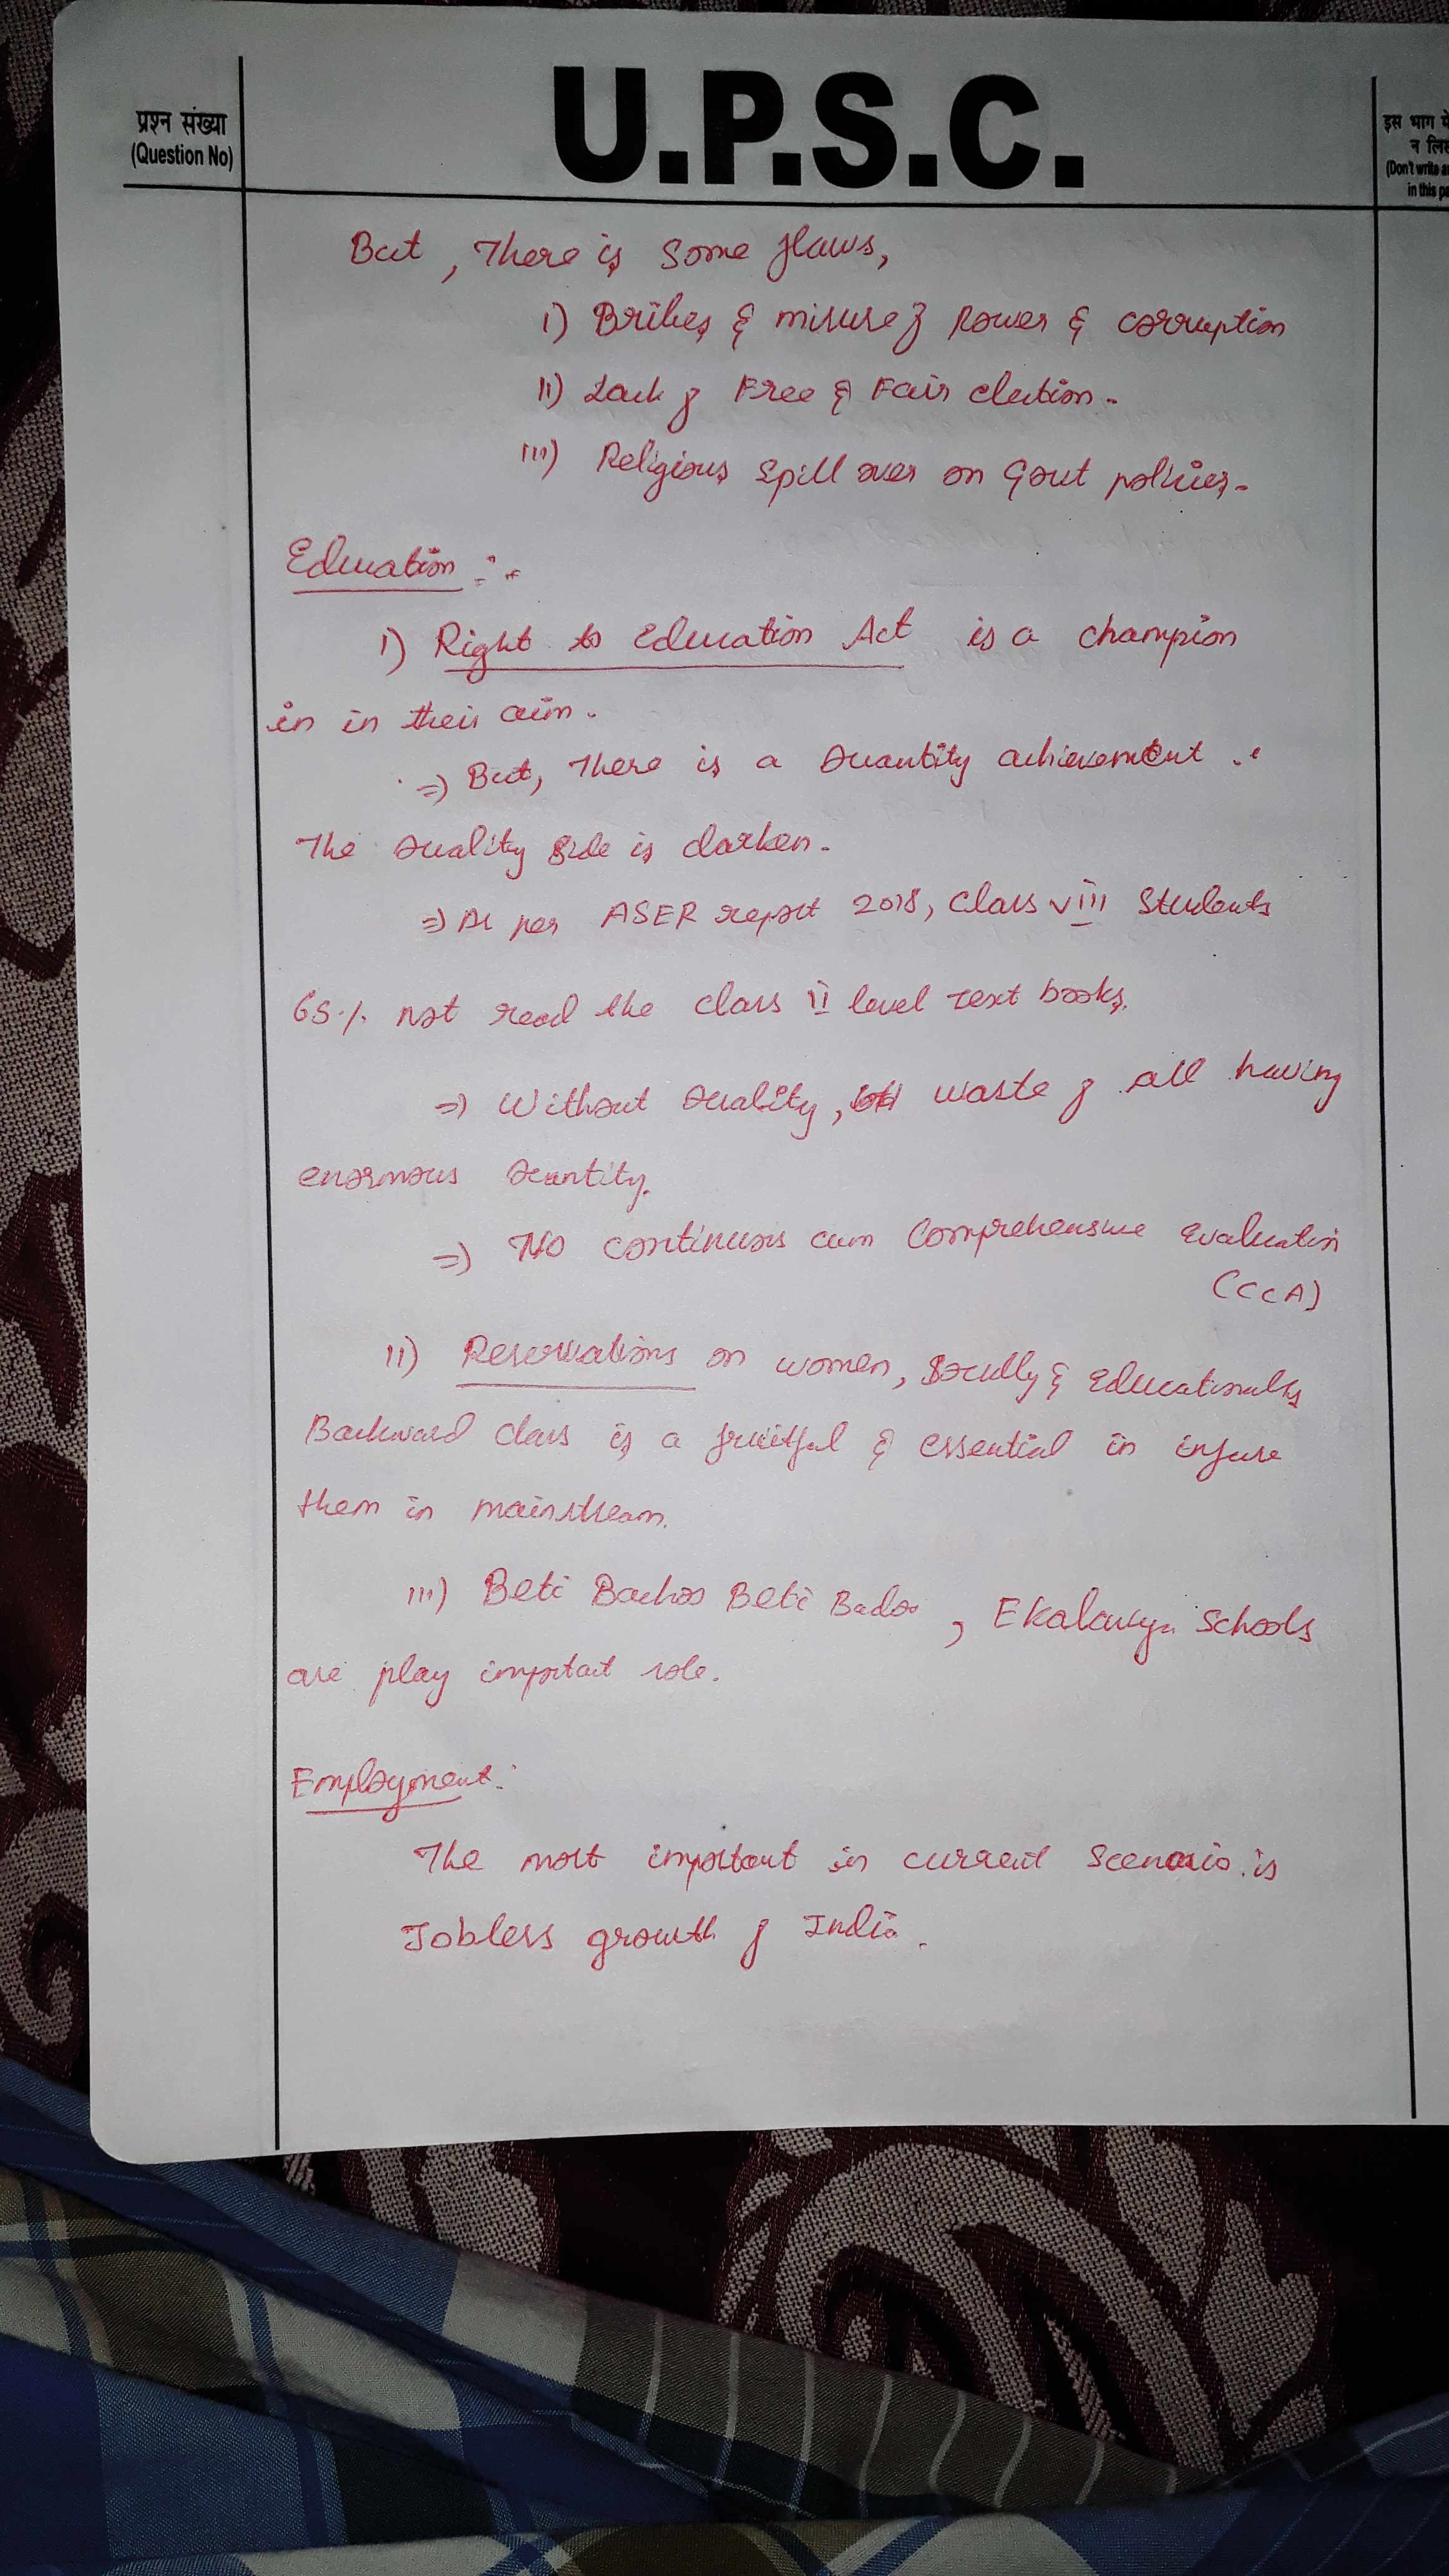 प्रश्न संख्या
(Question No)
U.P.S.C.
इस भाग मे
न लिख
(Don't write a
in this pa
But, There is Some flaws,
i) Bribes & misuse of Power & corruption
ii) Lack of Free & Fair election.
iii) Religious Spill over on Govt policies.
Education :-
i) Right to Education Act is a champion
in in their aim.
=> But, There is a Quantity achievement.
The Quality side is darken.
=> As per ASER report 2018, Class VIII Students
65% not read the class II level text books.
=> Without Quality, waste of all having
enormous Quantity.
=> No continuous cum Comprehensive Evaluation
(CCA)
ii) Reservations on women, Socially & Educationally
Backward class is a fruitful & essential in infuse
them in mainstream.
iii) Beti Bachao Beti Badao, Ekalavya Schools
are play important role.
Employment:
The most important in current Scenario is
Jobless growth of India.